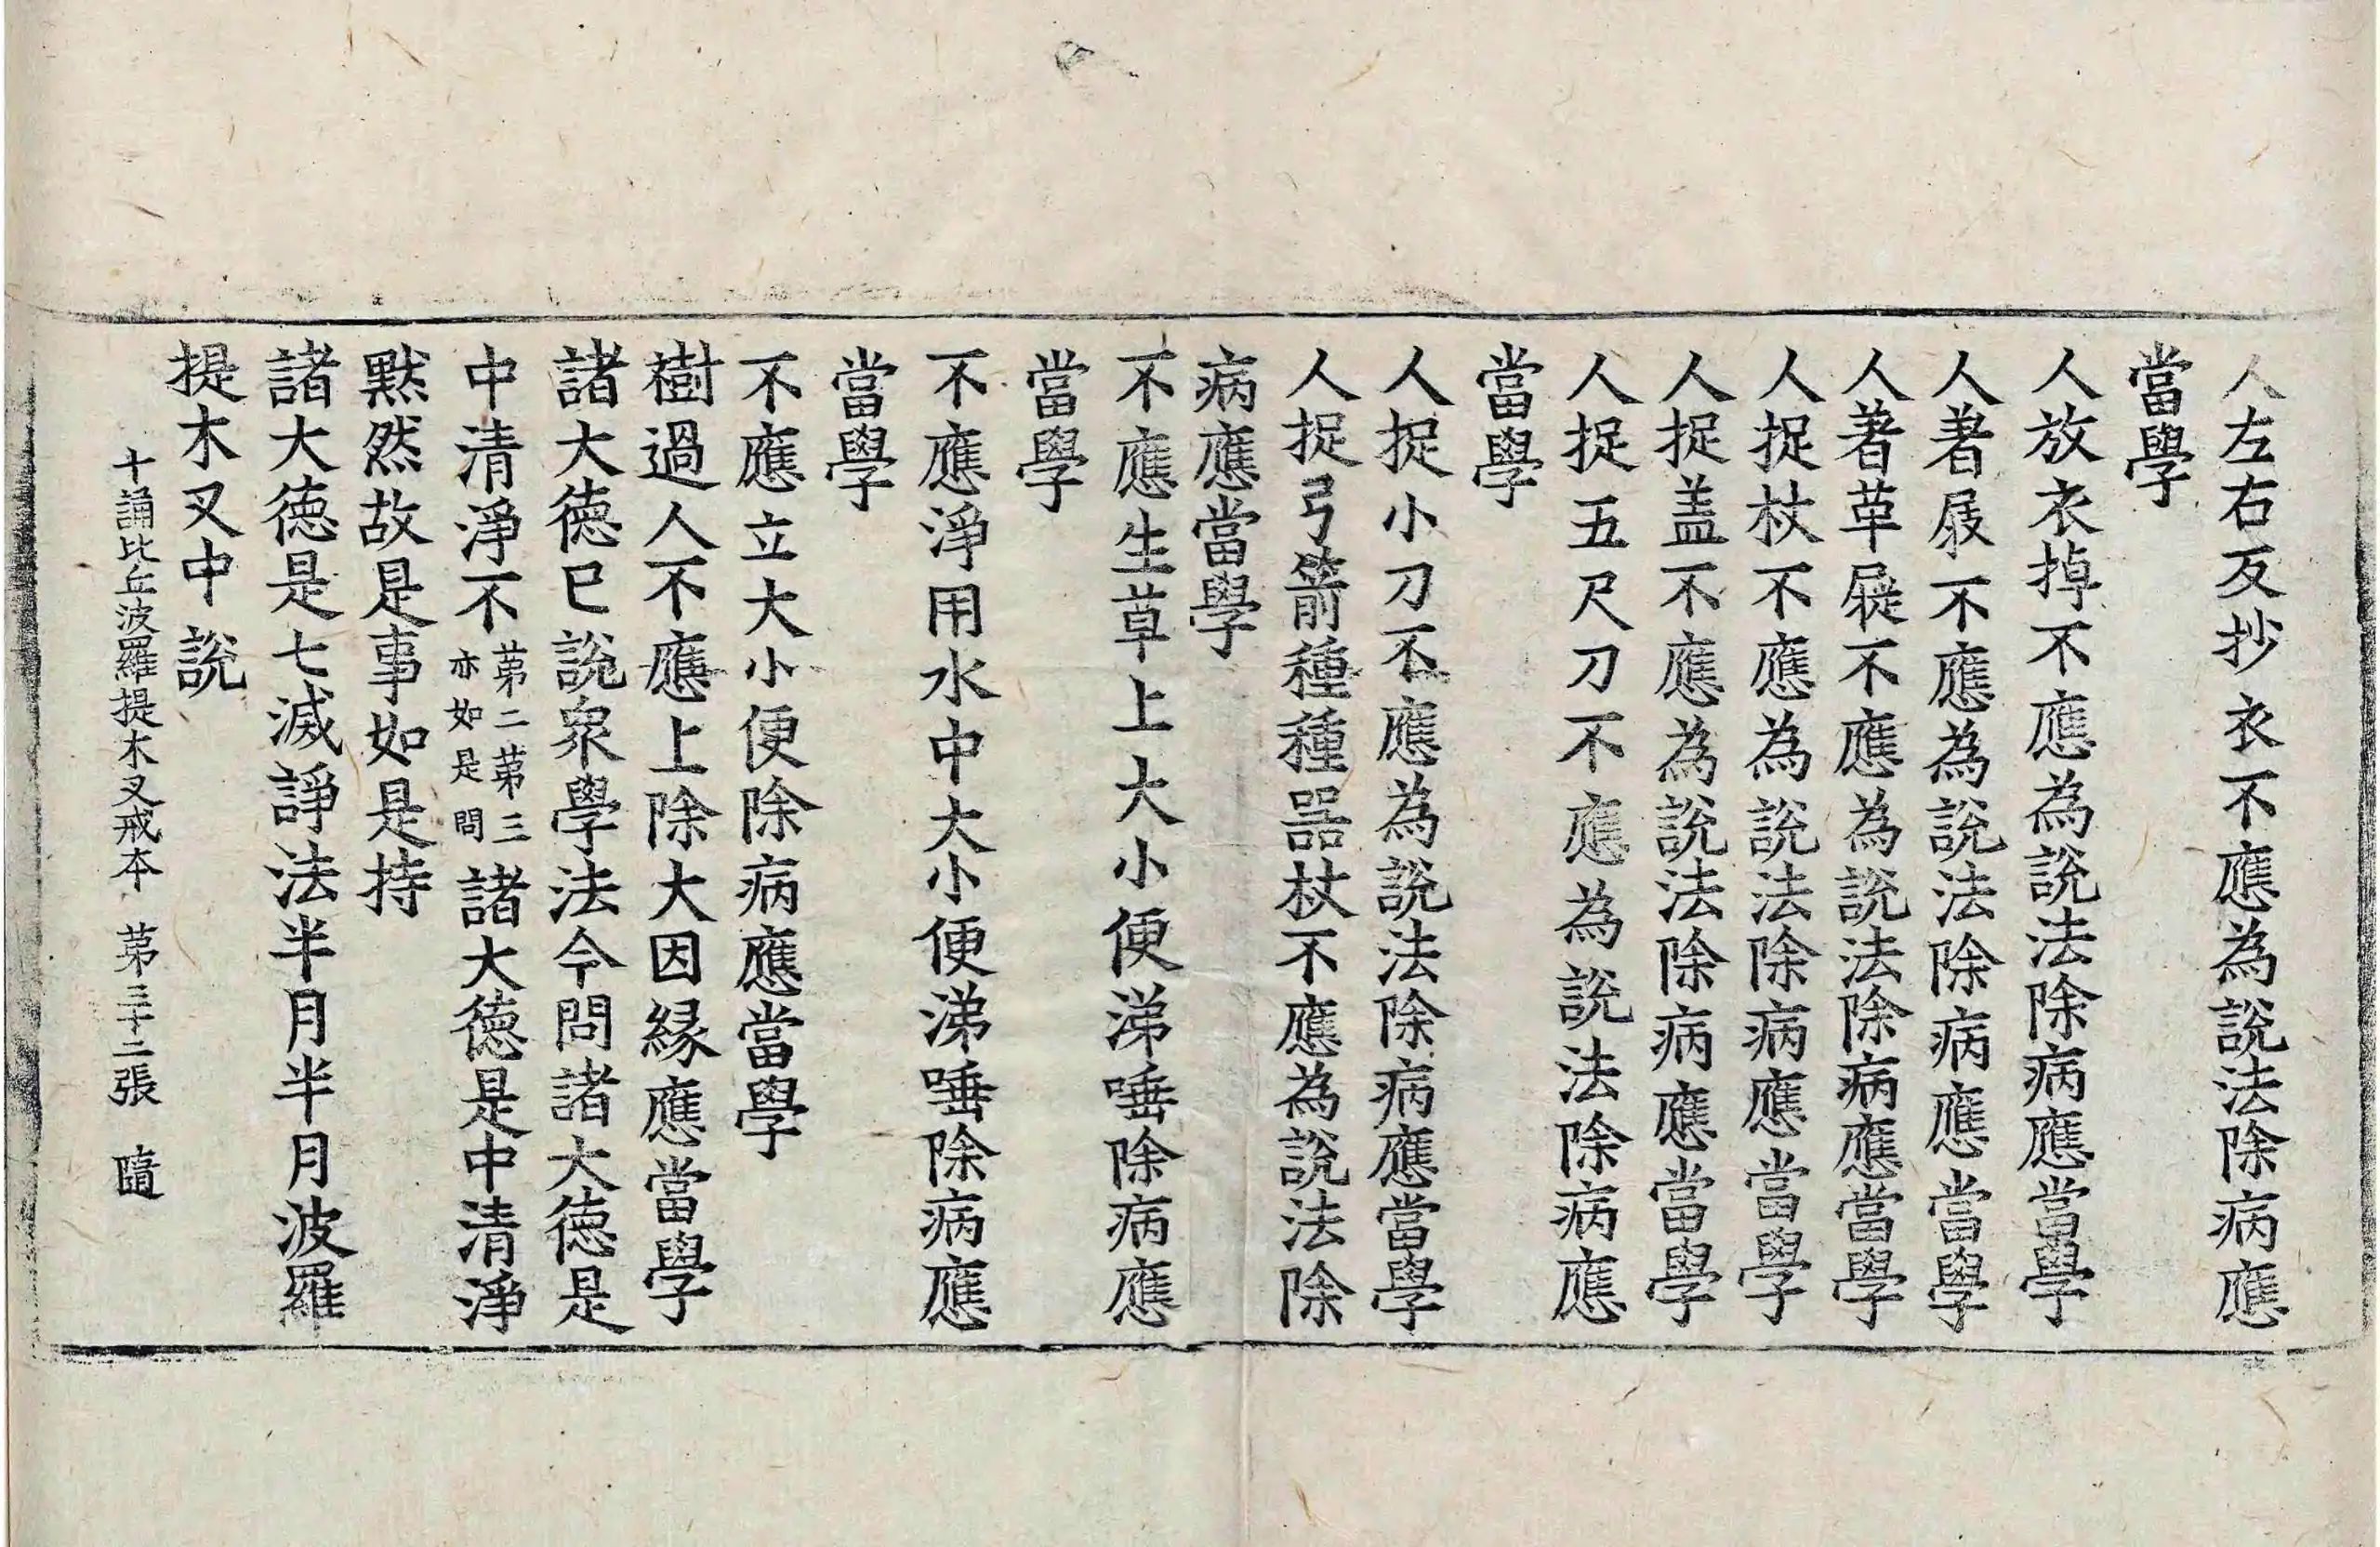 人左右反抄衣不應為說法除病應
當學
人放衣掉不應為說法除病應當學
人著屐不應為說法除病應當學
人著革屣不應為說法除病應當學
人捉杖不應為說法除病應當學
人捉盖不應為說法除病應當學
人捉五尺刀不應為說法除病應
當學
人捉小刀不應為說法除病應當學
人捉弓箭種種器杖不應為說法除
病應當學
不應生草上大小便涕唾除病應
當學
不應淨用水中大小便涕唾除病應
當學
不應立大小便除病應當學
樹過人不應上除大因縁應當學
諸大德已說衆學法今問諸大德是
中清淨不第二第三亦如是問諸大德是中清淨
黙然故是事如是持
諸大德是七滅諍法半月半月波羅
提木叉中說
十誦比丘波羅提木叉戒本 第三十二張